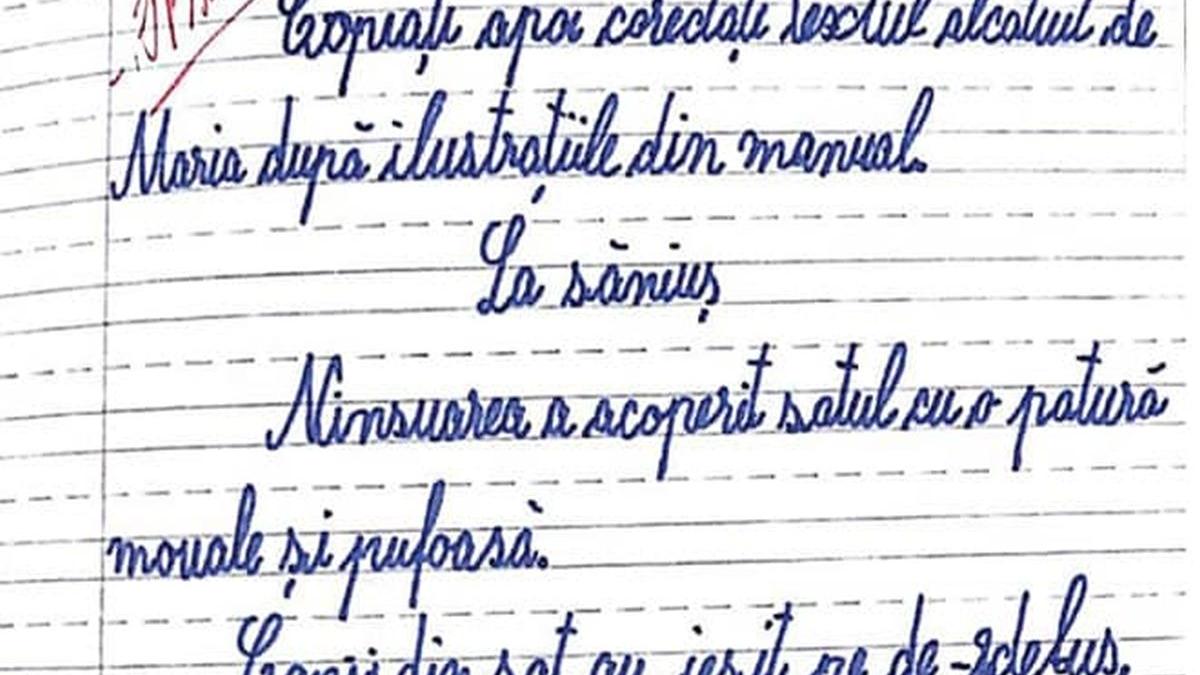 Copiați apoi corectați textul alcătuit de
Maria după ilustrațiile din manual.
La săniuș
Ninsuarea a acoperit satul cu o patură
mouale și pufoasă.
din sat au ieșit pe de-